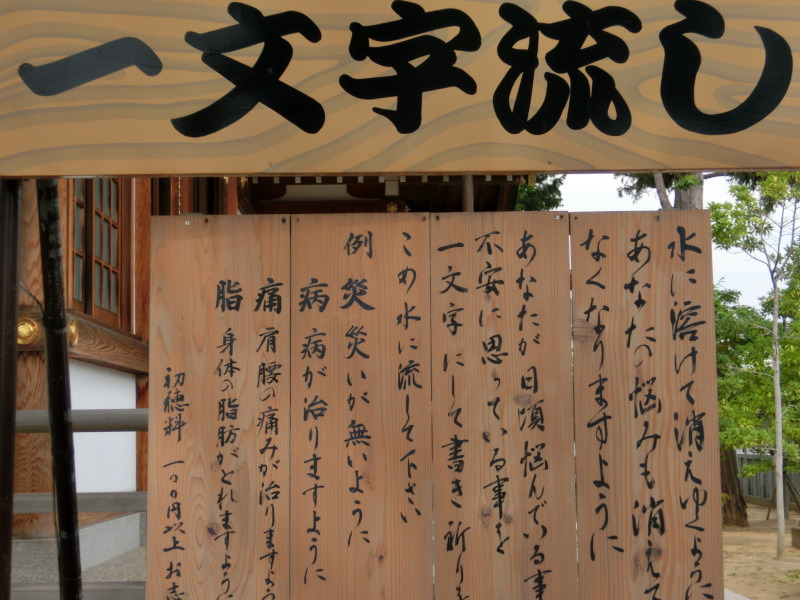 一文字流し
水に溶けて消えゆくように
あなたの悩みも消えて
なくなりますように
あなたが日頃悩んでいる事
不安に思っている事を
一文字にして書き祈りを
こめ水に流して下さい
例 災 災いが無いように
病 病が治りますように
痛 肩腰の痛みが治りますよう
脂 身体の脂肪がとれますように
初穂料 一〇〇円以上お志